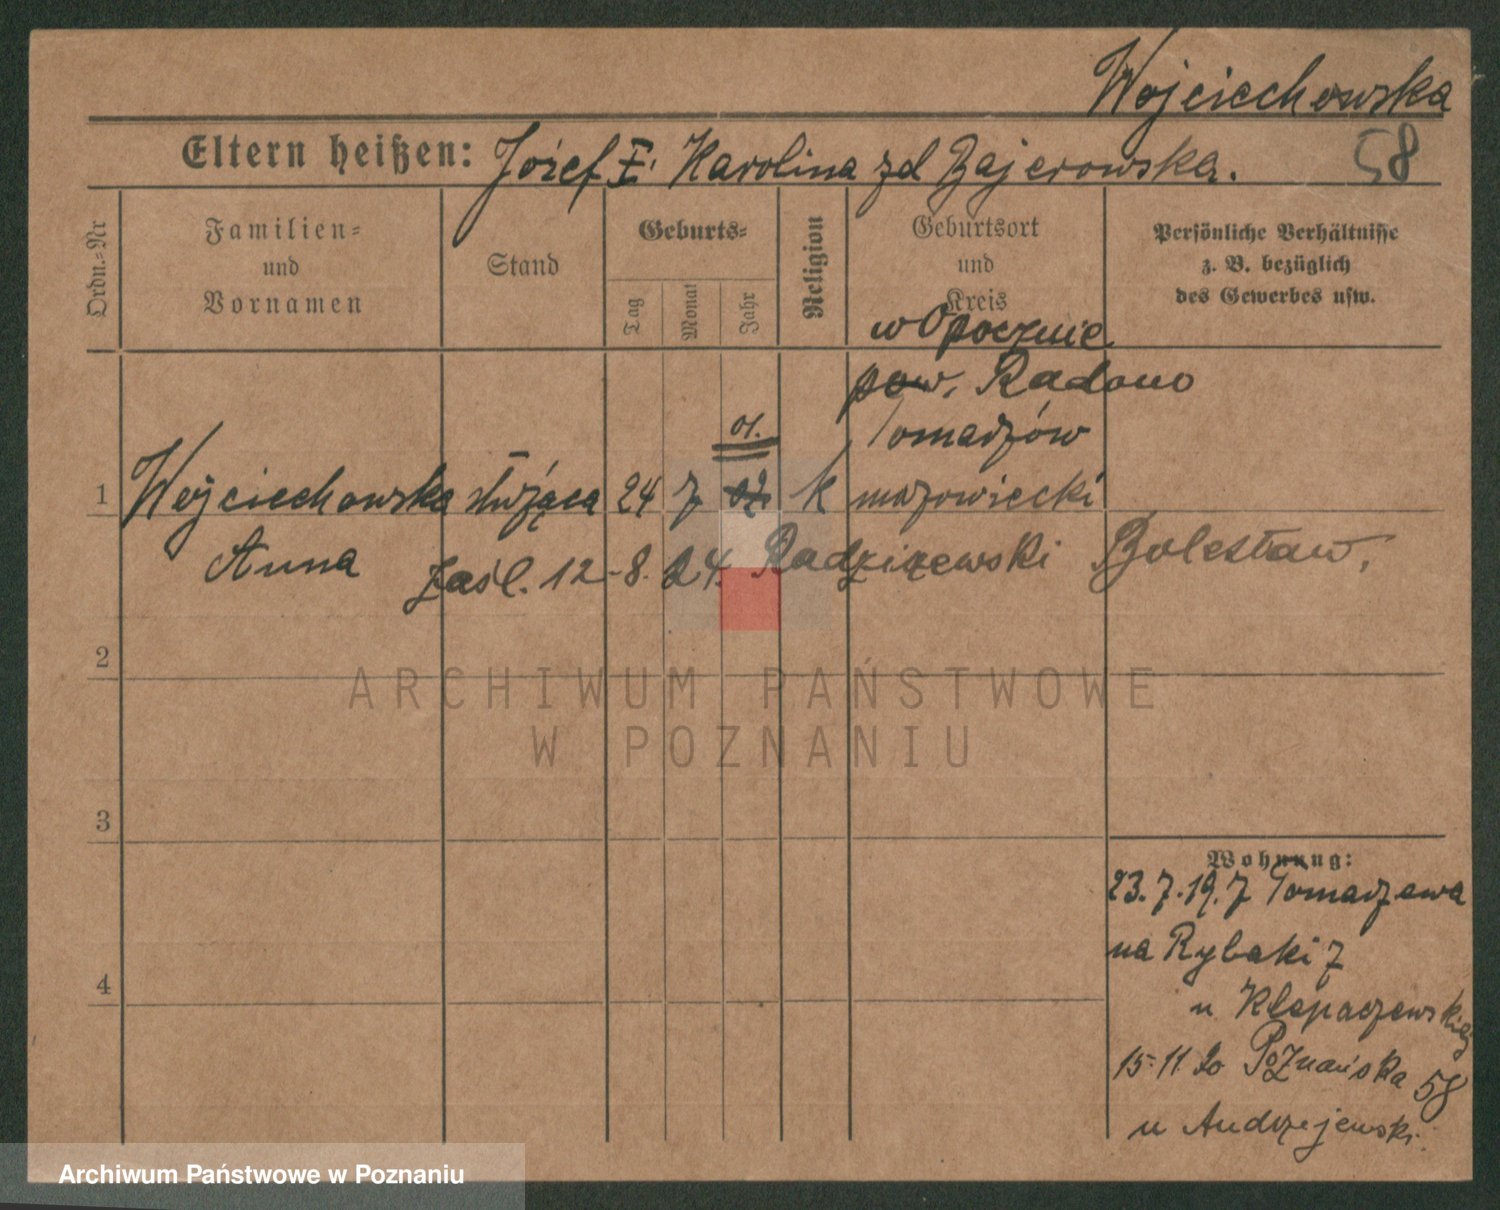 Wojciechowska
Eltern heißen: Józef I Karolina zd Bajerowska.
58
Ordn.=Nr
Familien=
und
Vornamen
Stand
Geburts=
Tag
Monat
Jahr
Religion
Geburtsort
und
Kreis
Persönliche Verhältnisse
z. B. bezüglich
des Gewerbes usw.
w Opocznie
pow. Radomo
Tomaszów
01.
1 Wojciechowska służąca 24 7 02 k mazowiecki
Anna
zaśl. 12-8. 24. Radziszewski Bolesław.
2
3
4
Wohnung:
23.7.19. z Tomaszewa
na Rybaki 7
u Klapaczewskiej
15-11 20 Poznańska 58
u Andrzejewski.
ARCHIWUM PAŃSTWOWE
W POZNANIU
Archiwum Państwowe w Poznaniu